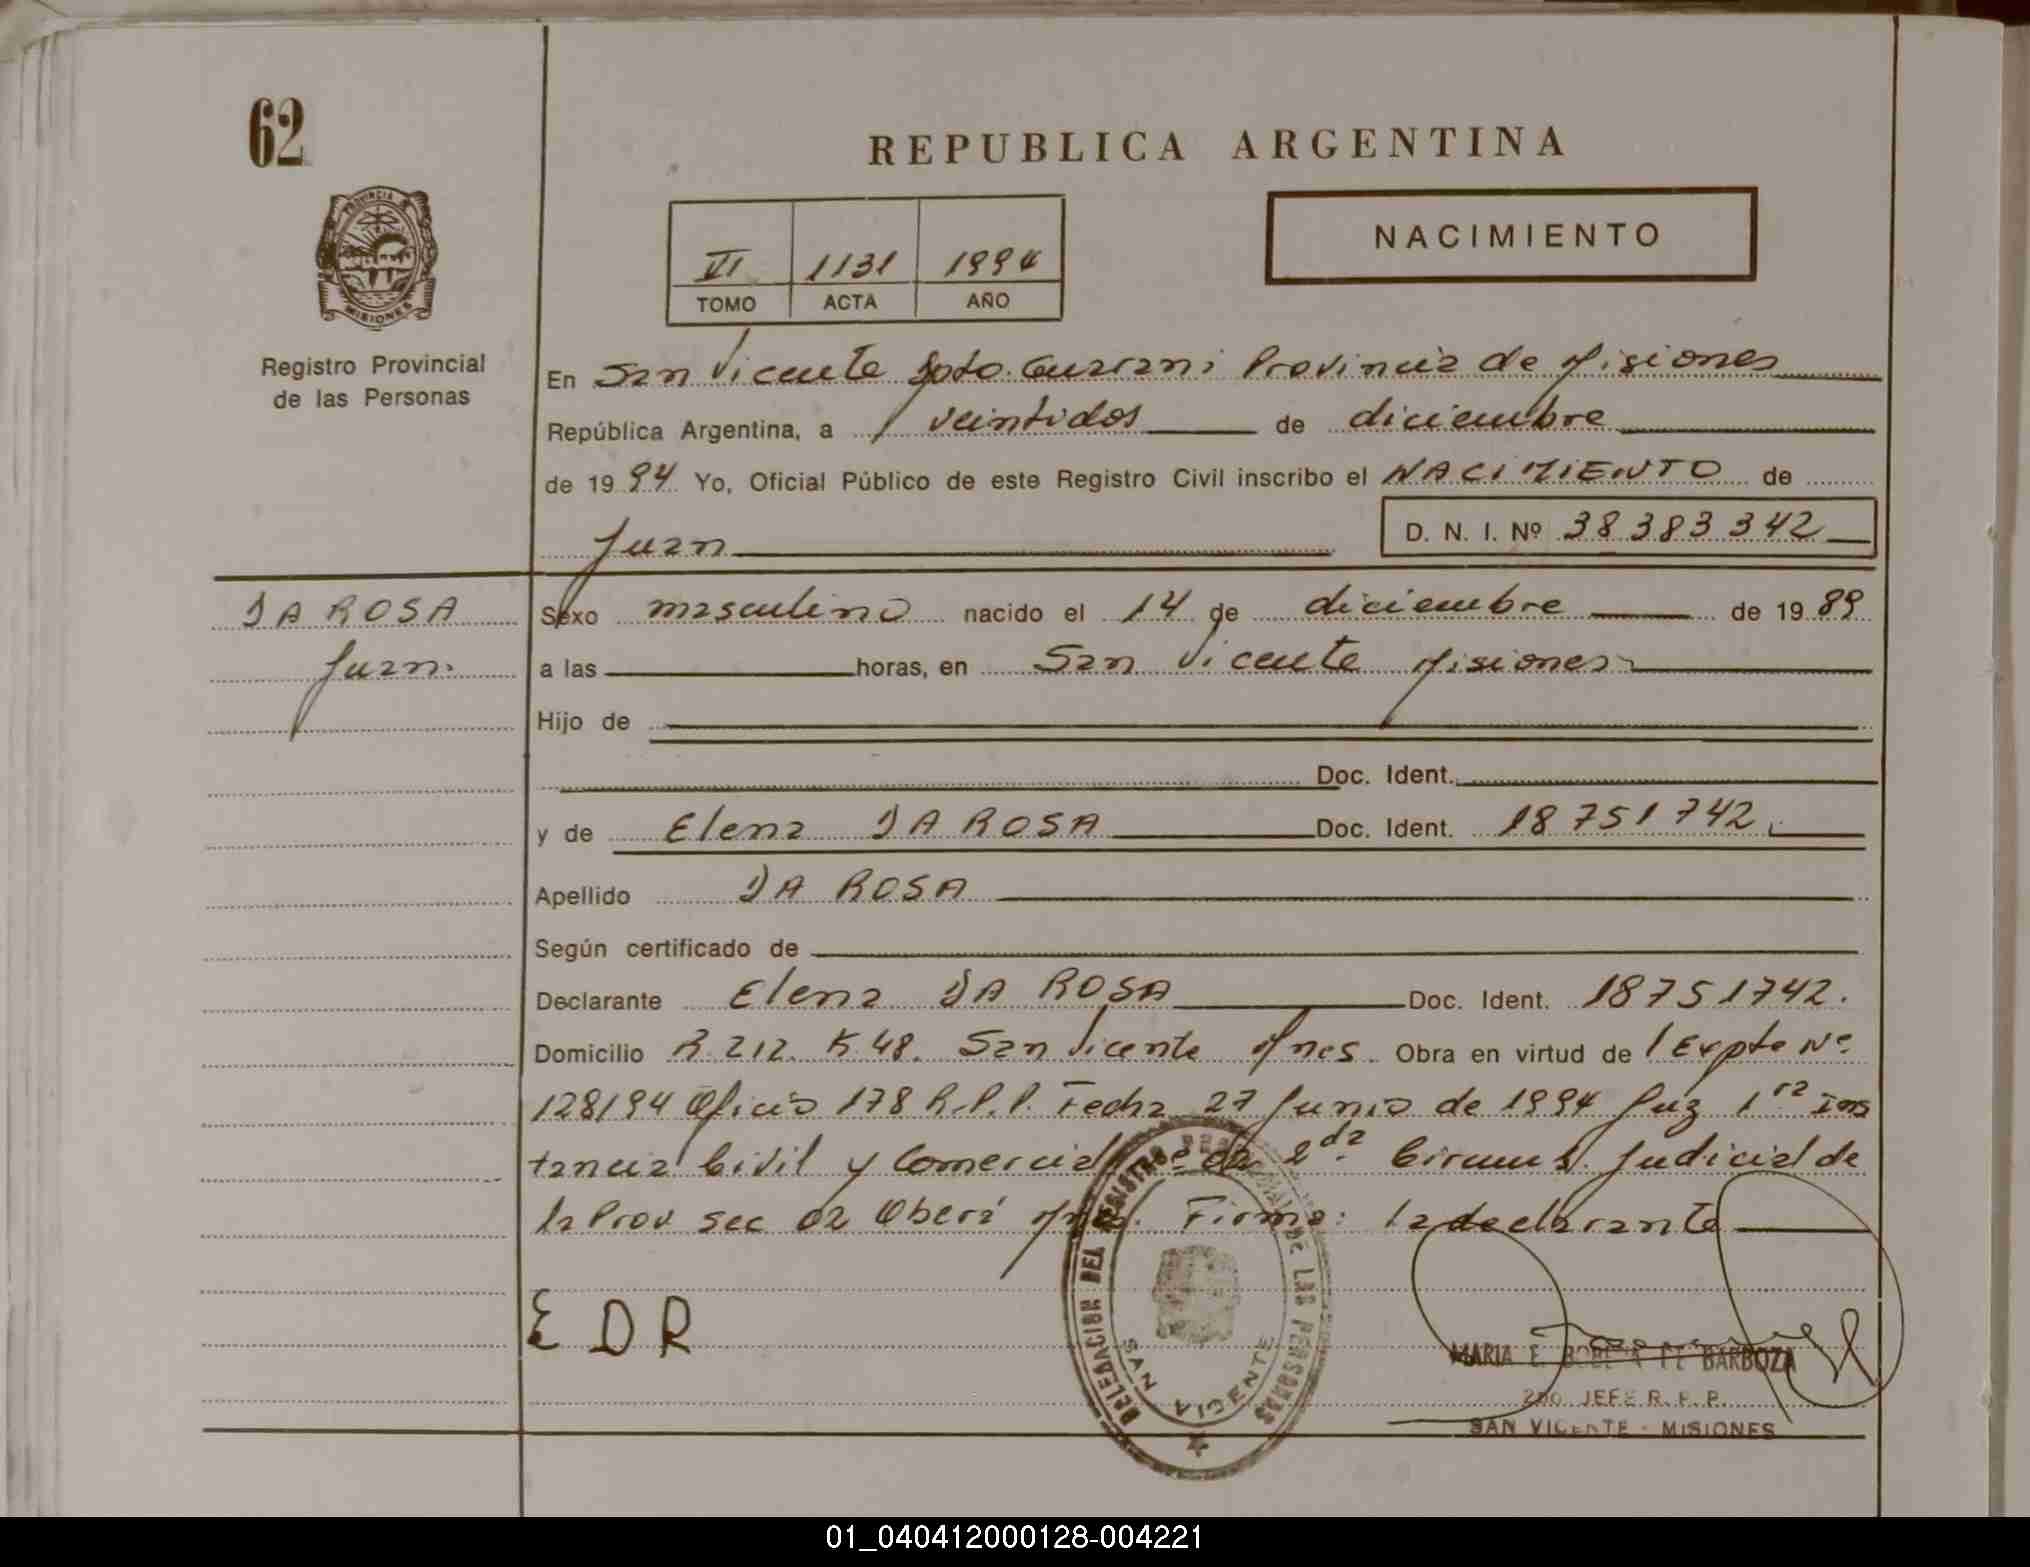 62
REPUBLICA ARGENTINA
PROVINCIA DE
MISIONES
NACIMIENTO
VI 1131 1994
TOMO ACTA AÑO
Registro Provincial
de las Personas
En San Vicente Dpto. Guarani Provincia de Misiones
República Argentina, a veintidos de diciembre
de 1994 Yo, Oficial Público de este Registro Civil inscribo el NACIMIENTO de
Juan D. N. I. Nº 38383342
DA ROSA
Juan.
Sexo masculino nacido el 14 de diciembre de 1989
a las horas, en San Vicente Misiones
Hijo de
Doc. Ident.
y de Elena DA ROSA Doc. Ident. 18751742
Apellido DA ROSA
Según certificado de
Declarante Elena DA ROSA Doc. Ident. 18751742.
Domicilio R. 212. K 48. San Vicente Mnes. Obra en virtud de / Expte Nº
128/94 Oficio 178 R.P.P. Fecha 27 Junio de 1994 Juz 1ra Ins
tancia Civil y Comercial de 2da Circuns. Judicial de
la Prov sec 02 Oberá Mnes. Firma: la declarante
E D R
DELEGACION DEL REGISTRO PROVINCIAL DE LAS PERSONAS
SAN VICENTE
MARIA E. DE BARBOZA
2DO. JEFE R. P. P.
SAN VICENTE - MISIONES
01_040412000128-004221